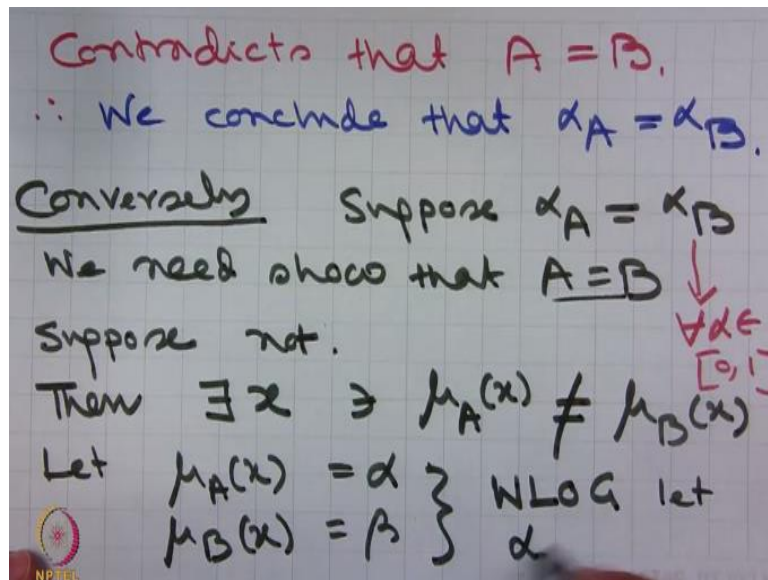 Contradicts that A = B.
∴ We conclude that αA = αB.
Conversely Suppose αA = αB
We need show that A = B
↓ ∀α∈
[0,1]
Suppose not.
Then ∃x ∋ μA(x) ≠ μB(x)
Let μA(x) = α } WLOG let
μB(x) = β } α
NPTEL